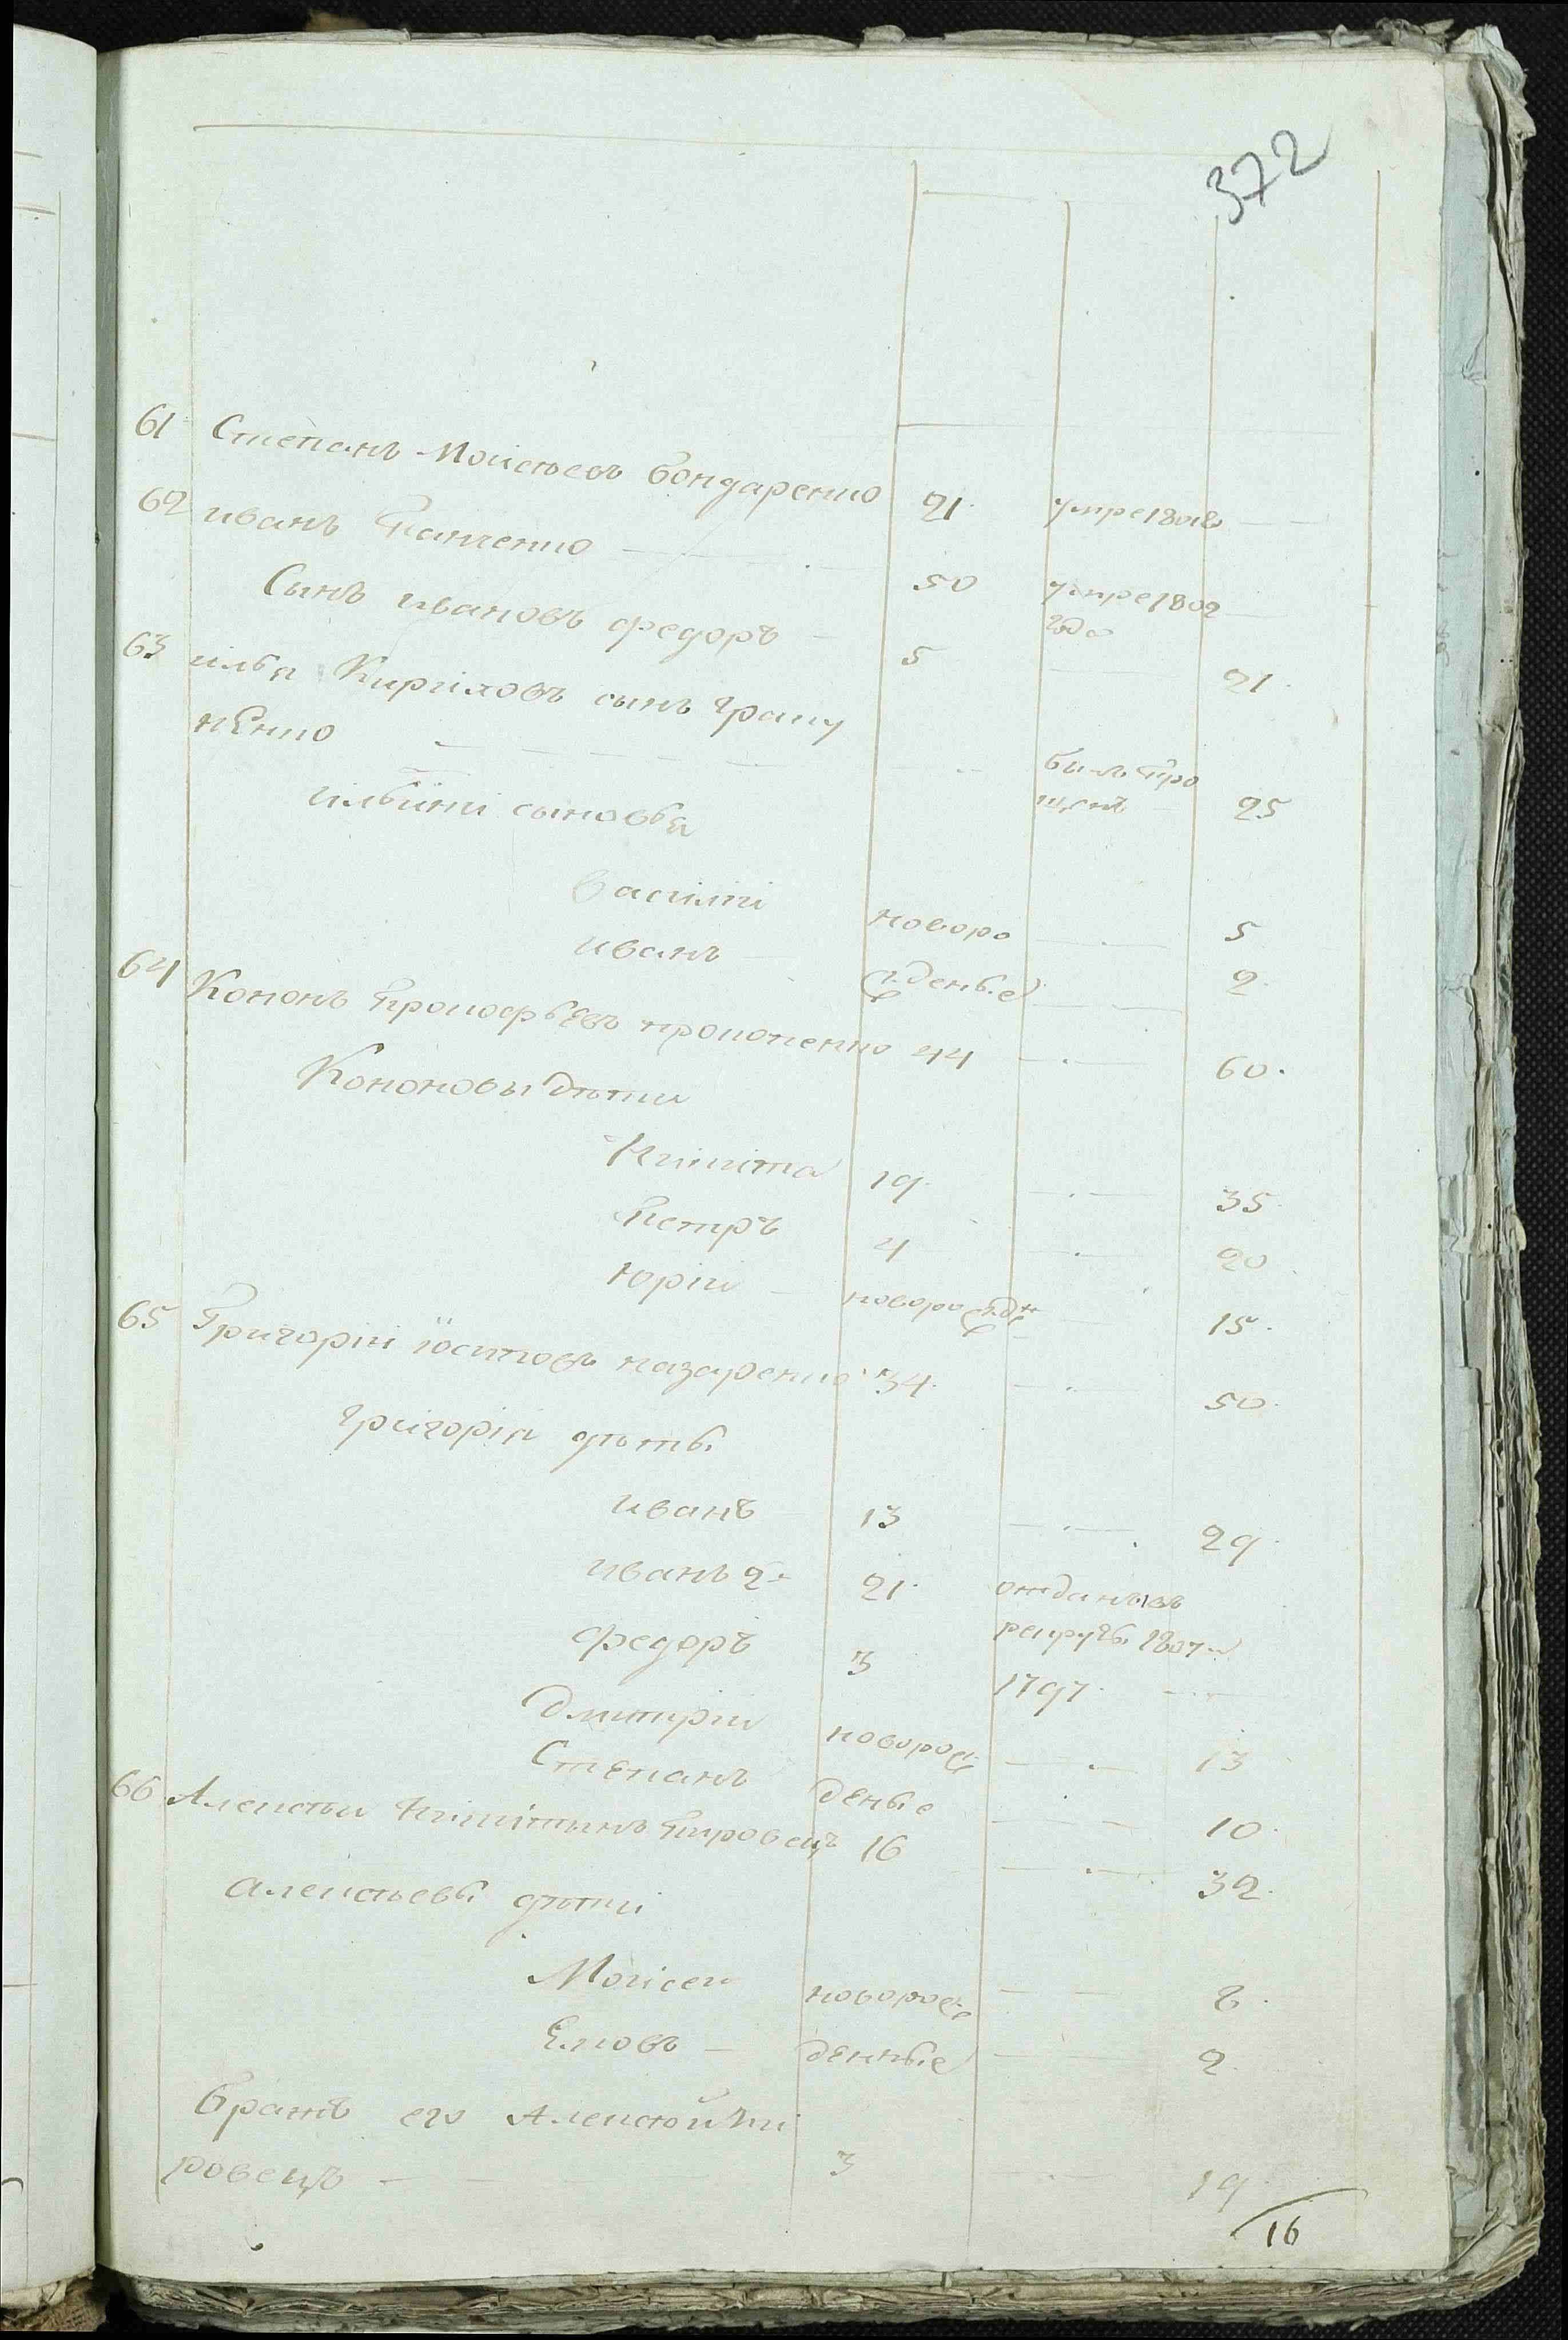 372
61 Степанъ Моисѣевъ Бондаренко 21 умре 1808
62 иванъ Панченко 50 умре 1802 года
Сынъ ивановъ федоръ 5 21
63 илья Кириловъ сынъ
ненко былъ про
щенъ 25
ильини сыновья
василій новоро 5
иванъ жденые 2
64 Кононъ Прокофьевъ прокопенко 44 60
Кононовы дѣти
Никита 19 35
Петръ 4 20
Юрій новорожде 15
65 Григорій іосиповъ назаренко 34 50
григорія дѣты
иванъ 13 29
иванъ 2й 21 отданъ въ
рекруты 1807
федоръ 3 1797
Дмитрій новорож 13
Степанъ деные 10
66 Алексѣи Никитинъ Пировецъ 16 32
алексѣевы дѣти
Моисеи новорож 8
денные 2
братъ его Алексѣй Пи
ровецъ 3 19
16